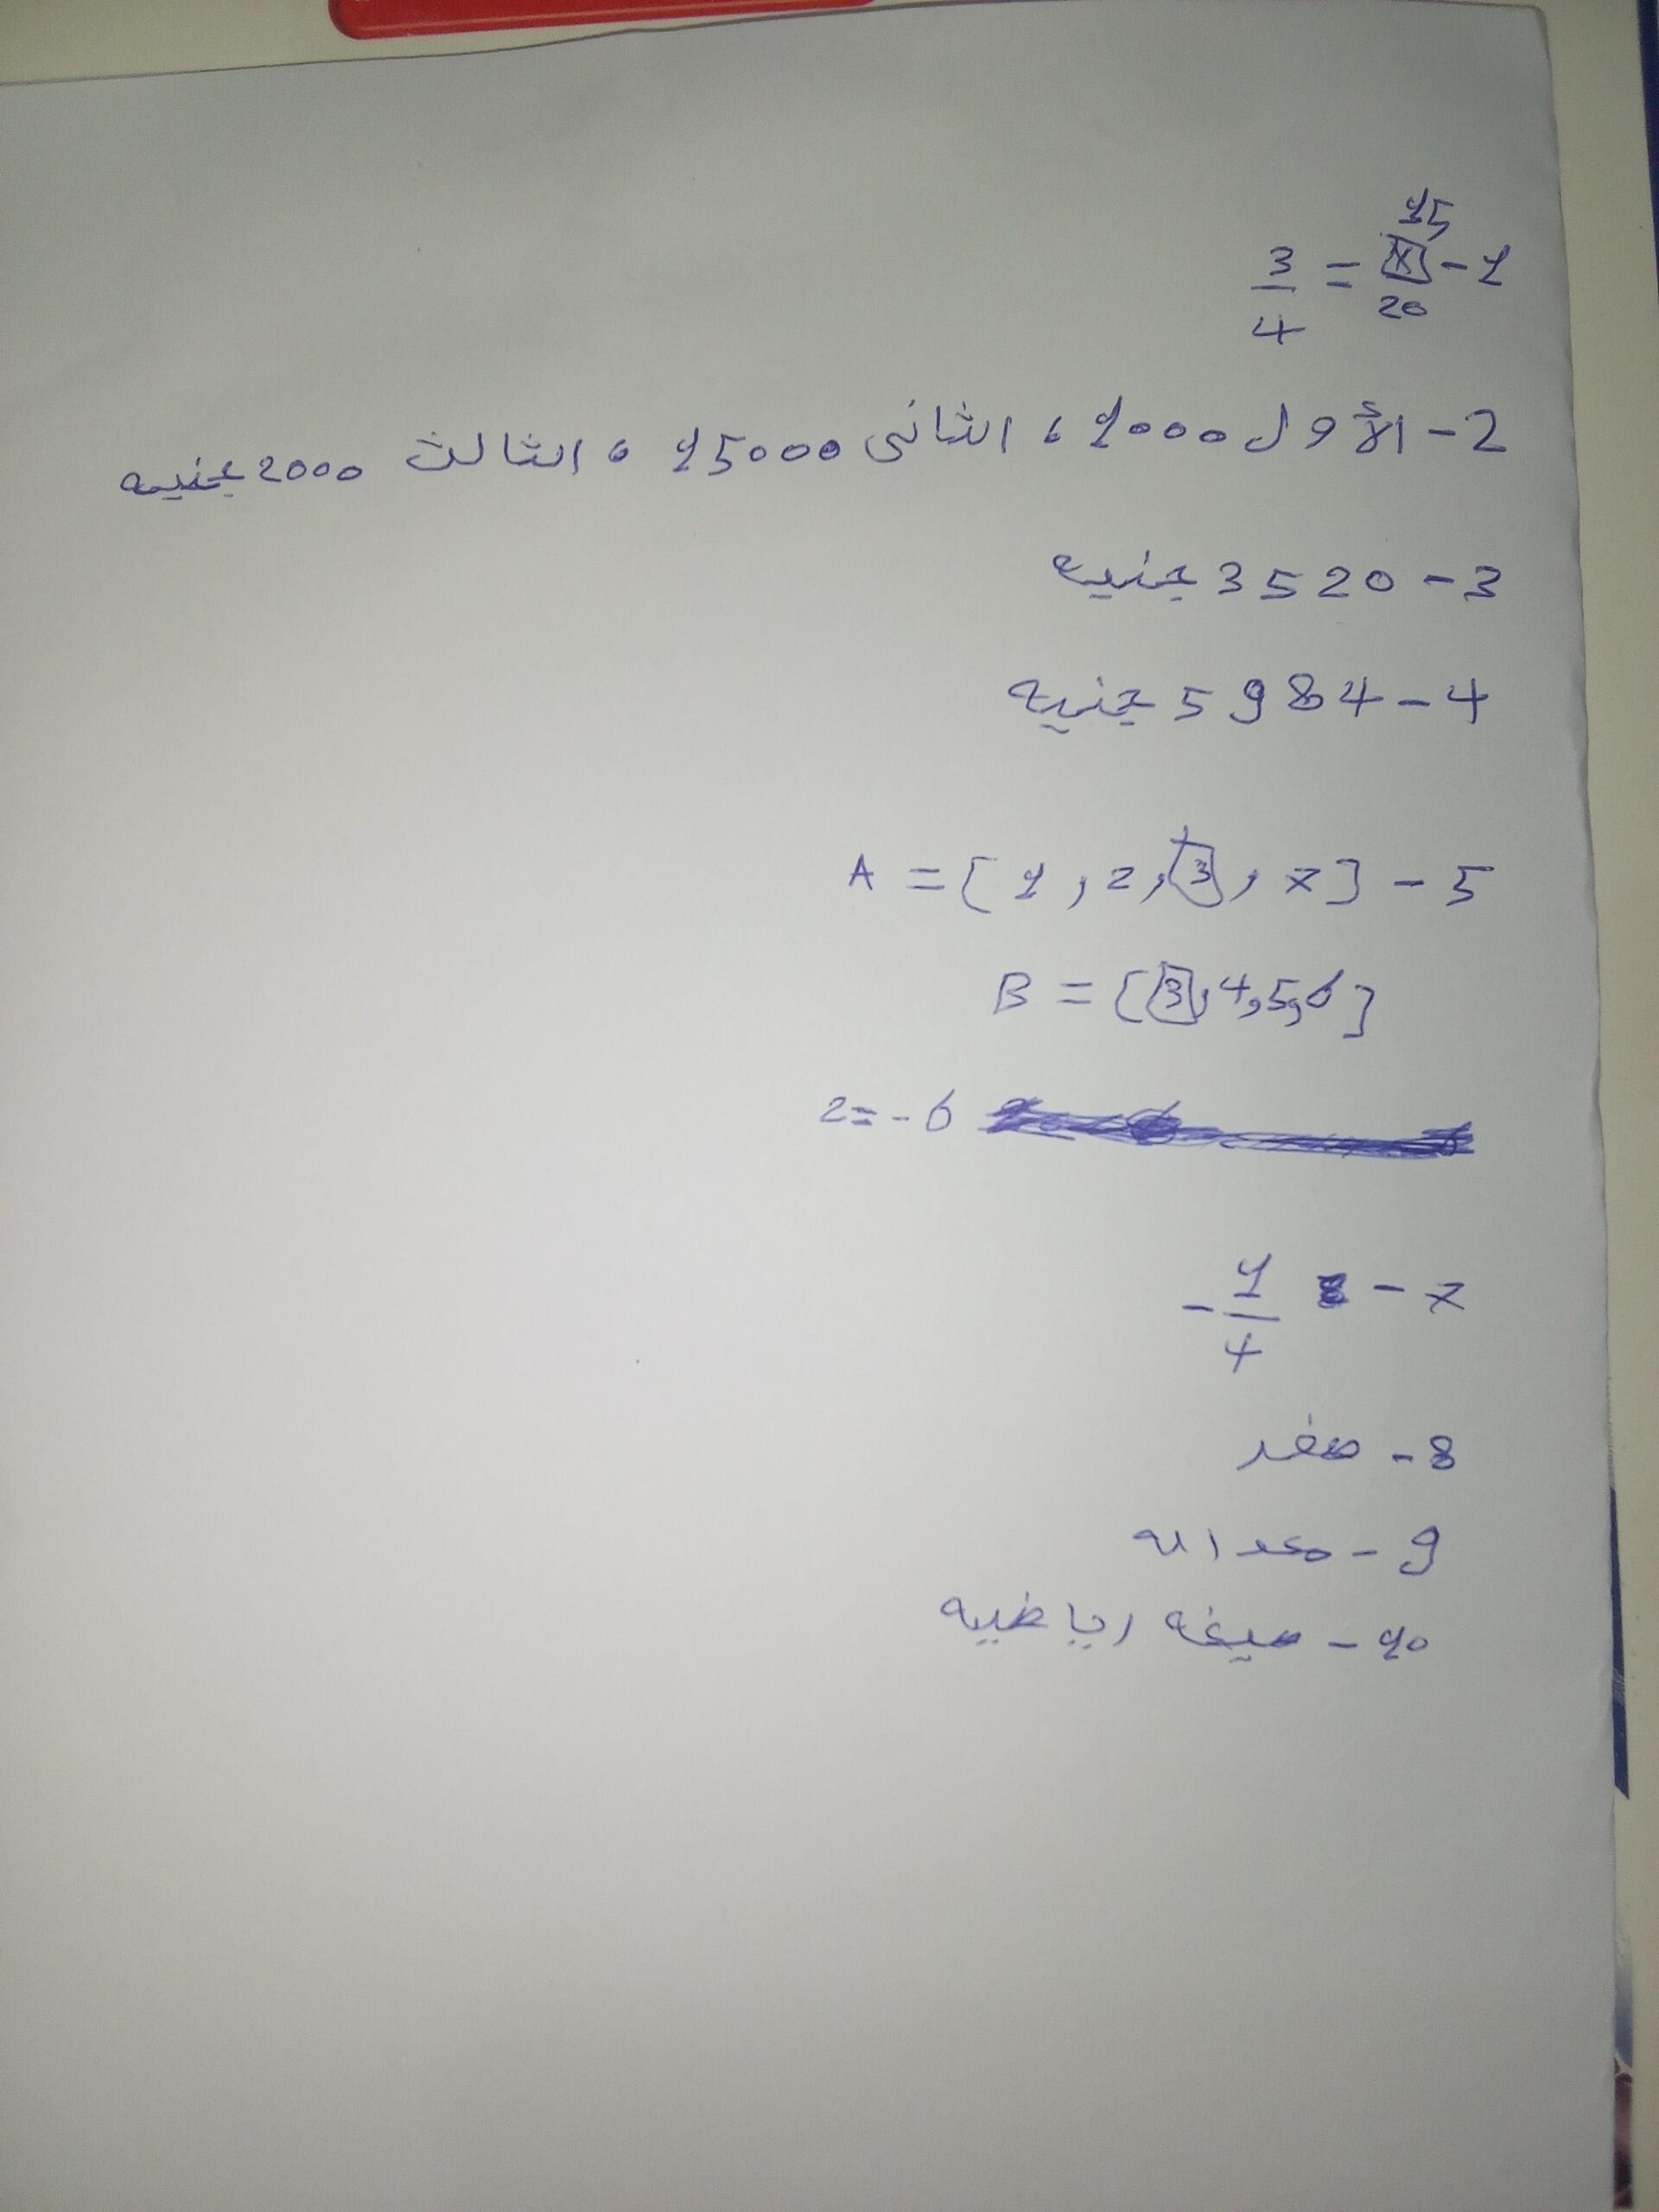 1- x/20 15 = 3/4
2- الأول 1000 ، الثانى 15000 ، الثالث 2000 جنيه
3- 3520 جنيه
4- 5984 جنيه
5- A = [1, 2, 3, 7]
B = [3, 4, 5, 6]
2=-6
7- -1/4
8- صفر
9- معدالة
10- صيغه رياضيه